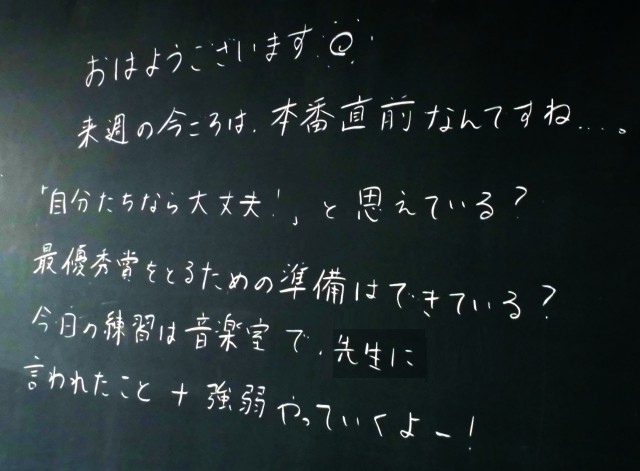 おはようございます
来週の今ころは、本番直前なんですね...。
「自分たちなら大丈夫！」と思えている？
最優秀賞をとるための準備はできている？
今日の練習は音楽室で、先生に
言われたこと＋強弱やっていくよー！